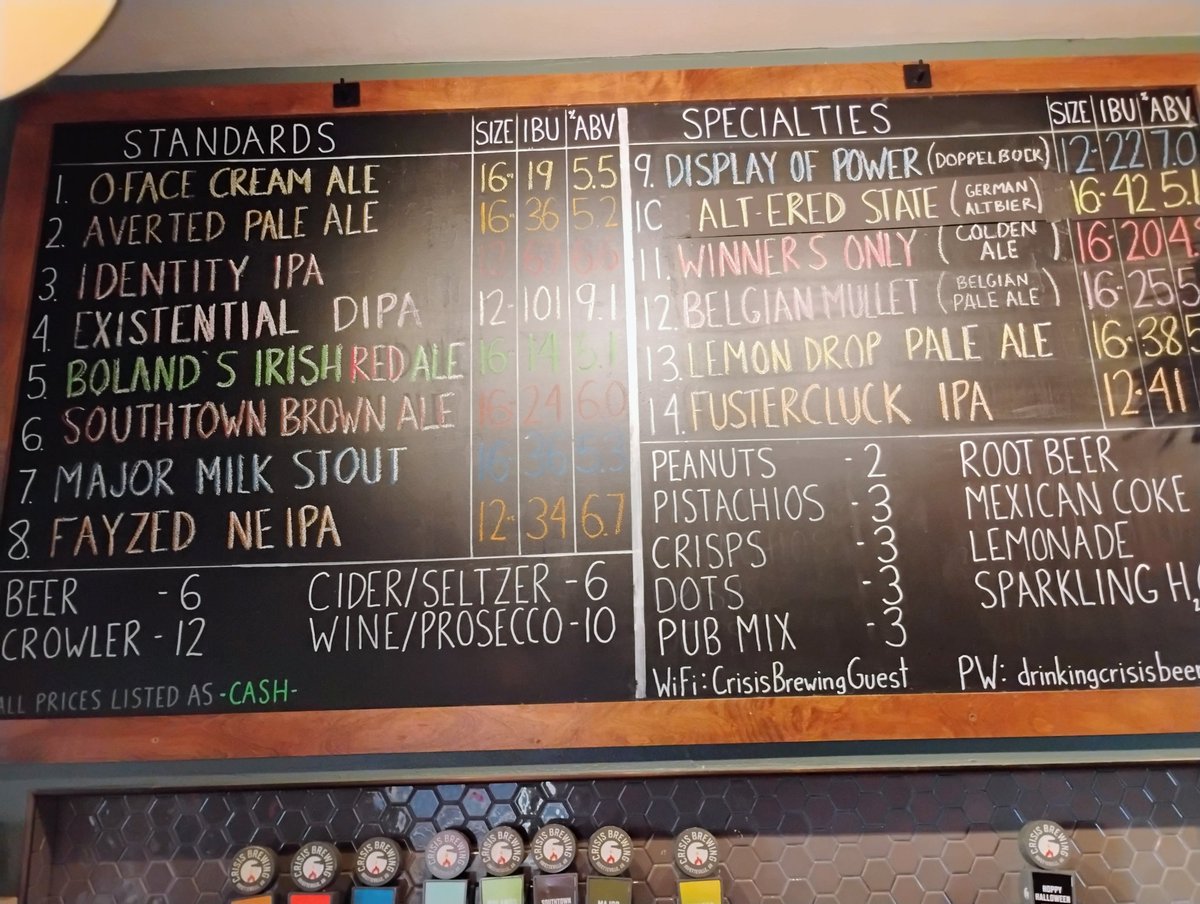 STANDARDS SIZE IBU % ABV
1. O-FACE CREAM ALE 16 19 5.5
2. AVERTED PALE ALE 16 36 5.2
3. IDENTITY IPA 6.6
4. EXISTENTIAL DIPA 12 101 9.1
5. BOLAND'S IRISH RED ALE 16 14 5.1
6. SOUTHTOWN BROWN ALE 16 24 6.0
7. MAJOR MILK STOUT 16 36 5.3
8. FAYZED NEIPA 12 34 6.7
BEER - 6 CIDER/SELTZER - 6
CROWLER - 12 WINE/PROSECCO - 10
ALL PRICES LISTED AS -CASH-
SPECIALTIES SIZE IBU % ABV
9. DISPLAY OF POWER (DOPPELBOCK) 12 22 7.0
1C ALT-ERED STATE (GERMAN ALTBIER) 16 42 5.1
11. WINNERS ONLY (GOLDEN ALE) 16 20 4.
12. BELGIAN MULLET (BELGIAN PALE ALE) 16 25 5
13. LEMON DROP PALE ALE 16 38 5
14. FUSTERCLUCK IPA 12 41
PEANUTS - 2 ROOT BEER
PISTACHIOS - 3 MEXICAN COKE
CRISPS - 3 LEMONADE
DOTS - 3 SPARKLING H₂
PUB MIX - 3
WiFi: CrisisBrewingGuest PW: drinkingcrisisbeer
CRISIS BREWING
CRISIS BREWING
CRISIS BREWING
CRISIS BREWING
CRISIS BREWING
CRISIS BREWING
CRISIS BREWING
CRISIS BREWING
CRISIS BREWING
SOUTHTOWN
MAJOR
HOPPY
HALLOWEEN